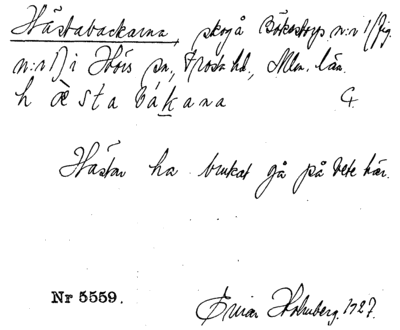 Hästabackarna, skog å Bökestorps n:r 1
n:r 1) i Hörs sn, Frosta hd, Mlm. län.
hæsta bákana
Hästar ha brukat gå på bete här.
Nr 5559.
Einar Holmberg. 1927.